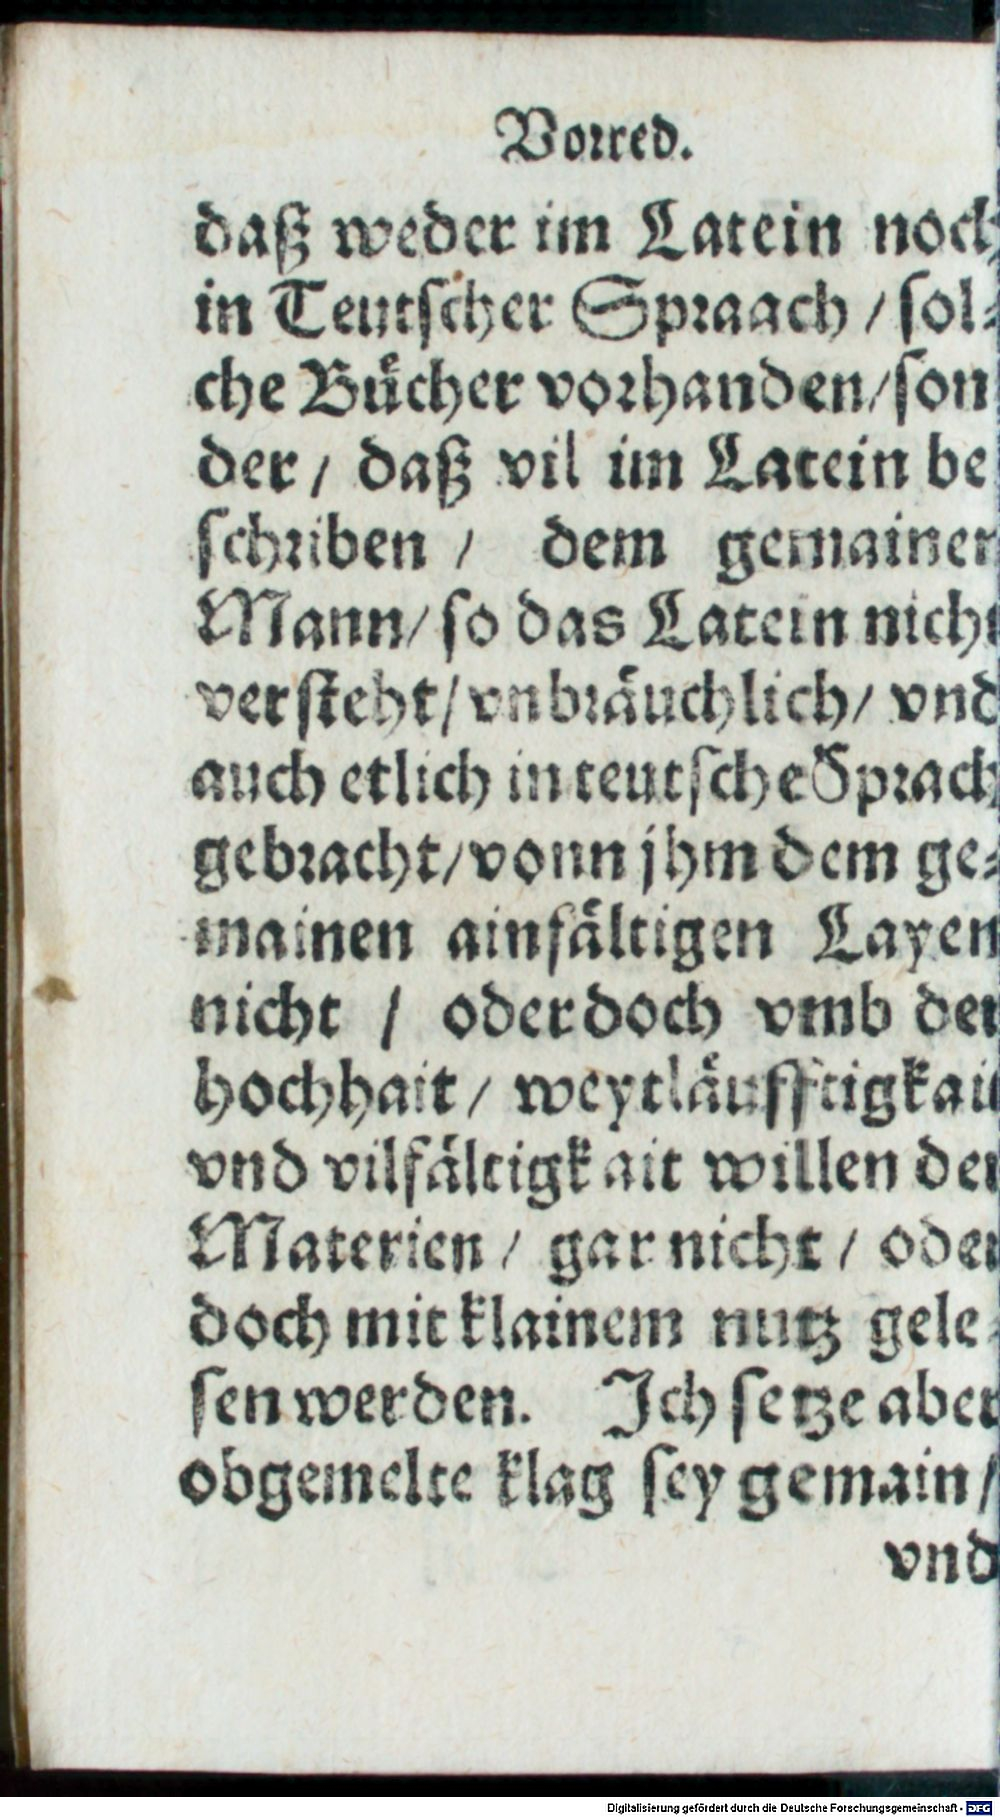 Vorred.
daß weder im Latein noch
in Teutscher Spraach / sol⸗
che Bücher vorhanden / son
der / daß vil im Latein be
schriben / dem gemainen
Mann / so das Latein nicht
versteht / vnbräuchlich / vnd
auch etlich in teutsche Sprach
gebracht / vonn jhm dem ge⸗
mainen ainfältigen Layen
nicht / oder doch vmb der
hochhait / weytläufftigkait
vnd vilfältigkait willen der
Materien / gar nicht / oder
doch mit klainem nutz gele⸗
sen werden. Ich setze aber
obgemelte klag sey gemain /
vnd
Digitalisierung gefördert durch die Deutsche Forschungsgemeinschaft - DFG